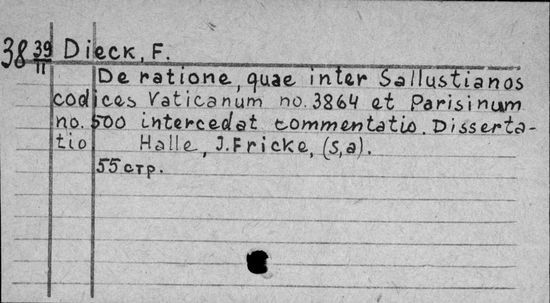 38 39/II Dieck, F.
De ratione, quae inter Sallustianos
codices Vaticanum no. 3864 et Parisinum
no. 500 intercedat commentatio. Disserta-
tio Halle, J. Fricke, (s,a).
55 стр.